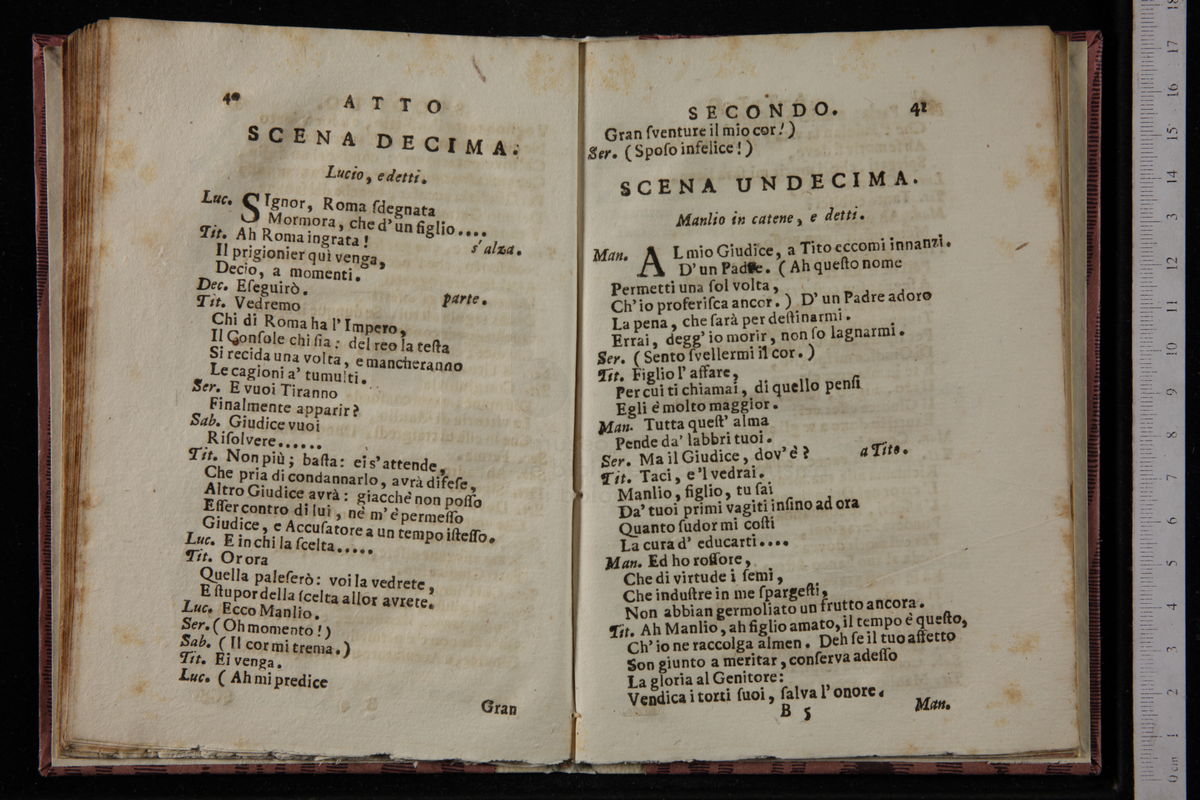 40 ATTO
SCENA DECIMA.
Lucio, e detti.
Luc. SIgnor, Roma ſdegnata
Mormora, che d' un figlio....
Tit. Ah Roma ingrata! s'alza.
Il prigionier quì venga,
Decio, a momenti.
Dec. Eſeguirò. parte.
Tit. Vedremo
Chi di Roma ha l' Impero,
Il Conſole chi ſia: del reo la teſta
Si recida una volta, e mancheranno
Le cagioni a' tumulti.
Ser. E vuoi Tiranno
Finalmente apparir?
Sab. Giudice vuoi
Riſolvere......
Tit. Non più; baſta: ei s'attende,
Che pria di condannarlo, avrà difeſe,
Altro Giudice avrà: giacchè non poſſo
Eſſer contro di lui, nè m' è permeſſo
Giudice, e Accuſatore a un tempo iſteſſo.
Luc. E in chi la ſcelta.....
Tit. Or ora
Quella paleſerò: voi la vedrete,
E ſtupor della ſcelta allor avrete.
Luc. Ecco Manlio.
Ser. (Oh momento!)
Sab. (Il cor mi trema.)
Tit. Ei venga.
Luc. (Ah mi predice
Gran
SECONDO. 41
Gran ſventure il mio cor!)
Ser. (Spoſo infelice!)
SCENA UNDECIMA.
Manlio in catene, e detti.
Man. AL mio Giudice, a Tito eccomi innanzi.
D' un Padre. (Ah queſto nome
Permetti una ſol volta,
Ch' io proferiſca ancor.) D' un Padre adoro
La pena, che ſarà per deſtinarmi.
Errai, degg' io morir, non ſo lagnarmi.
Ser. (Sento ſvellermi il cor.)
Tit. Figlio l' affare,
Per cui ti chiamai, di quello penſi
Egli è molto maggior.
Man. Tutta queſt' alma
Pende da' labbri tuoi.
Ser. Ma il Giudice, dov' è? a Tito.
Tit. Taci, e 'l vedrai.
Manlio, figlio, tu ſai
Da' tuoi primi vagiti inſino ad ora
Quanto ſudor mi coſti
La cura d' educarti....
Man. Ed ho roſſore,
Che di virtude i ſemi,
Che induſtre in me ſpargeſti,
Non abbian germoliato un frutto ancora.
Tit. Ah Manlio, ah figlio amato, il tempo è queſto,
Ch' io ne raccolga almen. Deh ſe il tuo affetto
Son giunto a meritar, conſerva adeſſo
La gloria al Genitore:
Vendica i torti ſuoi, ſalva l' onore.
B 5 Man.
0 cm 1 2 3 4 5 6 7 8 9 10 11 12 13 14 15 16 17 18